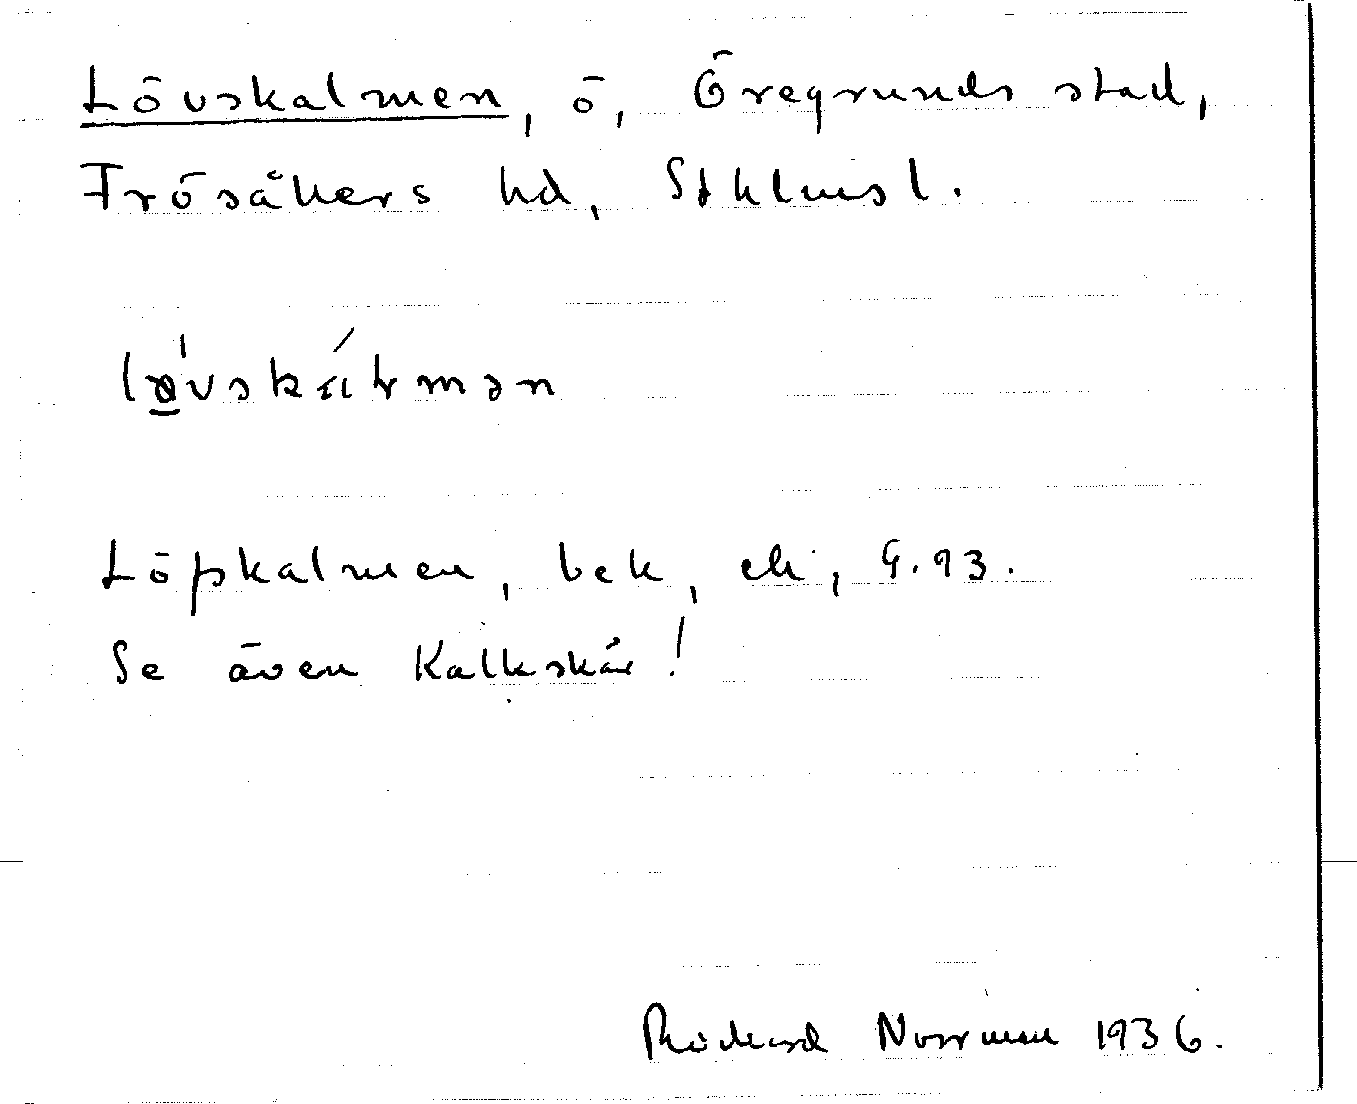 Lövskalmen, ö, Öregrunds stad,
Frösåkers hd, Sthlms l.
Löpskalmen, bek, ek, G. 93.
Se även Kalkskär!
Rickard Norrman 1936.